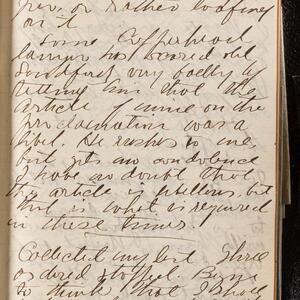 or rather loafing
on it
Some Copperhead
lawyer has scared old
Sandford very badly by
telling him that the
article of mine on the
proclamation was a
libel. He rushes to me,
but gets no condolence
I have no doubt that
this article is libellous, but
that is what is required
in these times.
Collected my last three
as dered Began
to think that I shall